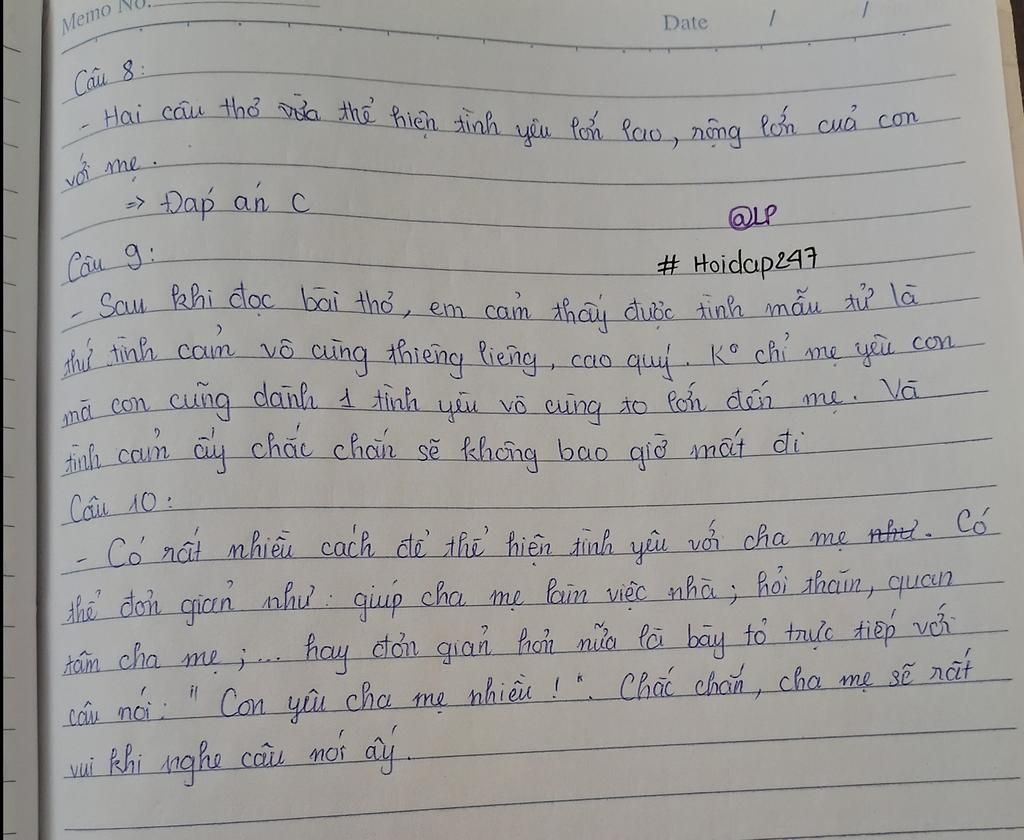 Memo No.
Date / /
Câu 8:
- Hai câu thơ vừa thể hiện tình yêu lớn lao, rộng lớn của con
với mẹ.
=> Đáp án C
@LP
Câu 9:
# Hoidap247
- Sau khi đọc bài thơ, em cảm thấy được tình mẫu tử là
thứ tình cảm vô cùng thiêng liêng, cao quý. K° chỉ mẹ yêu con
mà con cũng dành 1 tình yêu vô cùng to lớn đến mẹ. Và
tình cảm ấy chắc chắn sẽ không bao giờ mất đi
Câu 10:
- Có rất nhiều cách để thể hiện tình yêu với cha mẹ như. Có
thể đơn giản như: giúp cha mẹ làm việc nhà; hỏi thăm, quan
tâm cha mẹ;... hay đơn giản hơn nữa là bày tỏ trực tiếp với
câu nói: "Con yêu cha mẹ nhiều!". Chắc chắn, cha mẹ sẽ rất
vui khi nghe câu nói ấy.